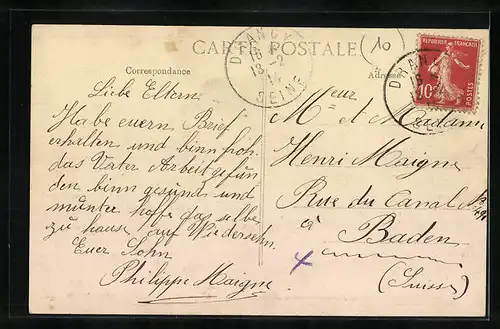 CARTE POSTALE
Correspondance
Adresse
10
DRANCY
13-2
14
SEINE
REPUBLIQUE FRANÇAISE
10c
POSTES
DRANCY
Liebe Eltern.
Habe euern Brief
erhalten und binn froh
das Vater Arbeit gefun
den binn gesund und
munter hoffe das selbe
zu hause, auf Wiedersehn.
Euer Sohn
Philippe Maigne
Mseur et Madame
Henri Maigne
Rue du Canal
à Baden
(Suisse)
x